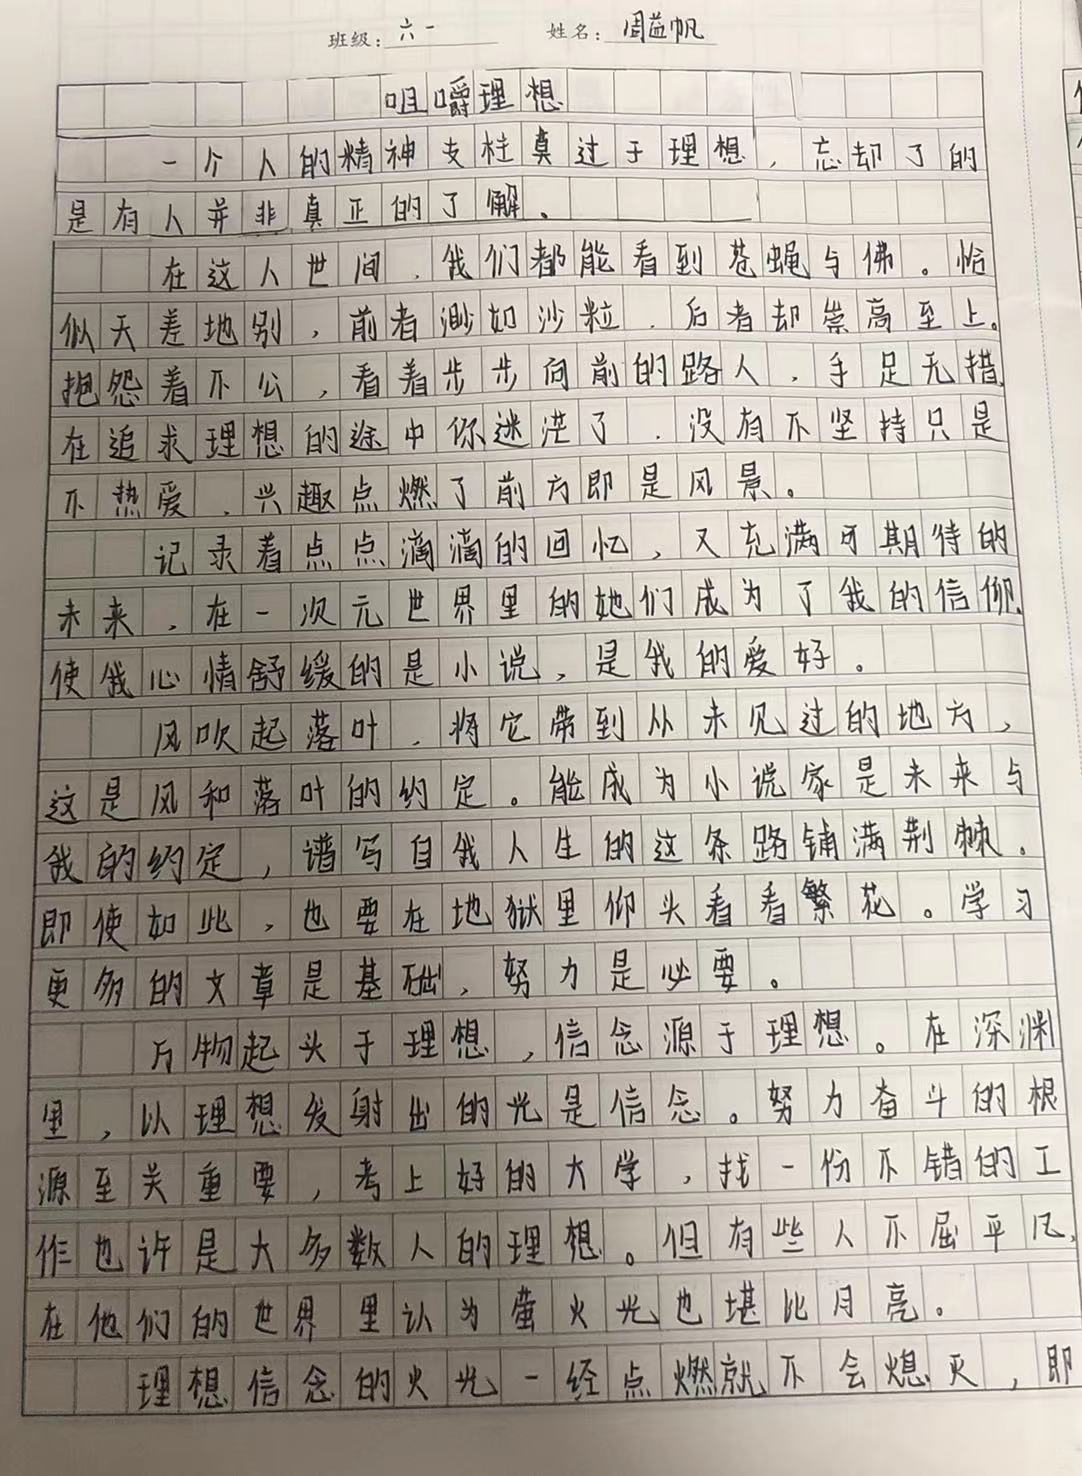 班级：六一 姓名：周益帆
咀嚼理想
一个人的精神支柱莫过于理想，忘却了的
是有人并非真正的了解。
在这人世间，我们都能看到苍蝇与佛。恰
似天差地别，前者渺如沙粒，后者却崇高至上。
抱怨着不公，看着步步向前的路人，手足无措，
在追求理想的途中你迷茫了，没有不坚持只是
不热爱，兴趣点燃了前方即是风景。
记录着点点滴滴的回忆，又充满可期待的
未来，在一次元世界里的她们成为了我的信仰，
使我心情舒缓的是小说，是我的爱好。
风吹起落叶，将它带到从未见过的地方，
这是风和落叶的约定。能成为小说家是未来与
我的约定，谱写自我人生的这条路铺满荆棘。
即使如此，也要在地狱里仰头看看繁花。学习
更多的文章是基础，努力是必要。
万物起头于理想，信念源于理想。在深渊
里，以理想发射出的光是信念。努力奋斗的根
源至关重要，考上好的大学，找一份不错的工
作也许是大多数人的理想。但有些人不屈平凡，
在他们的世界里认为萤火光也堪比月亮。
理想信念的火光一经点燃就不会熄灭，即